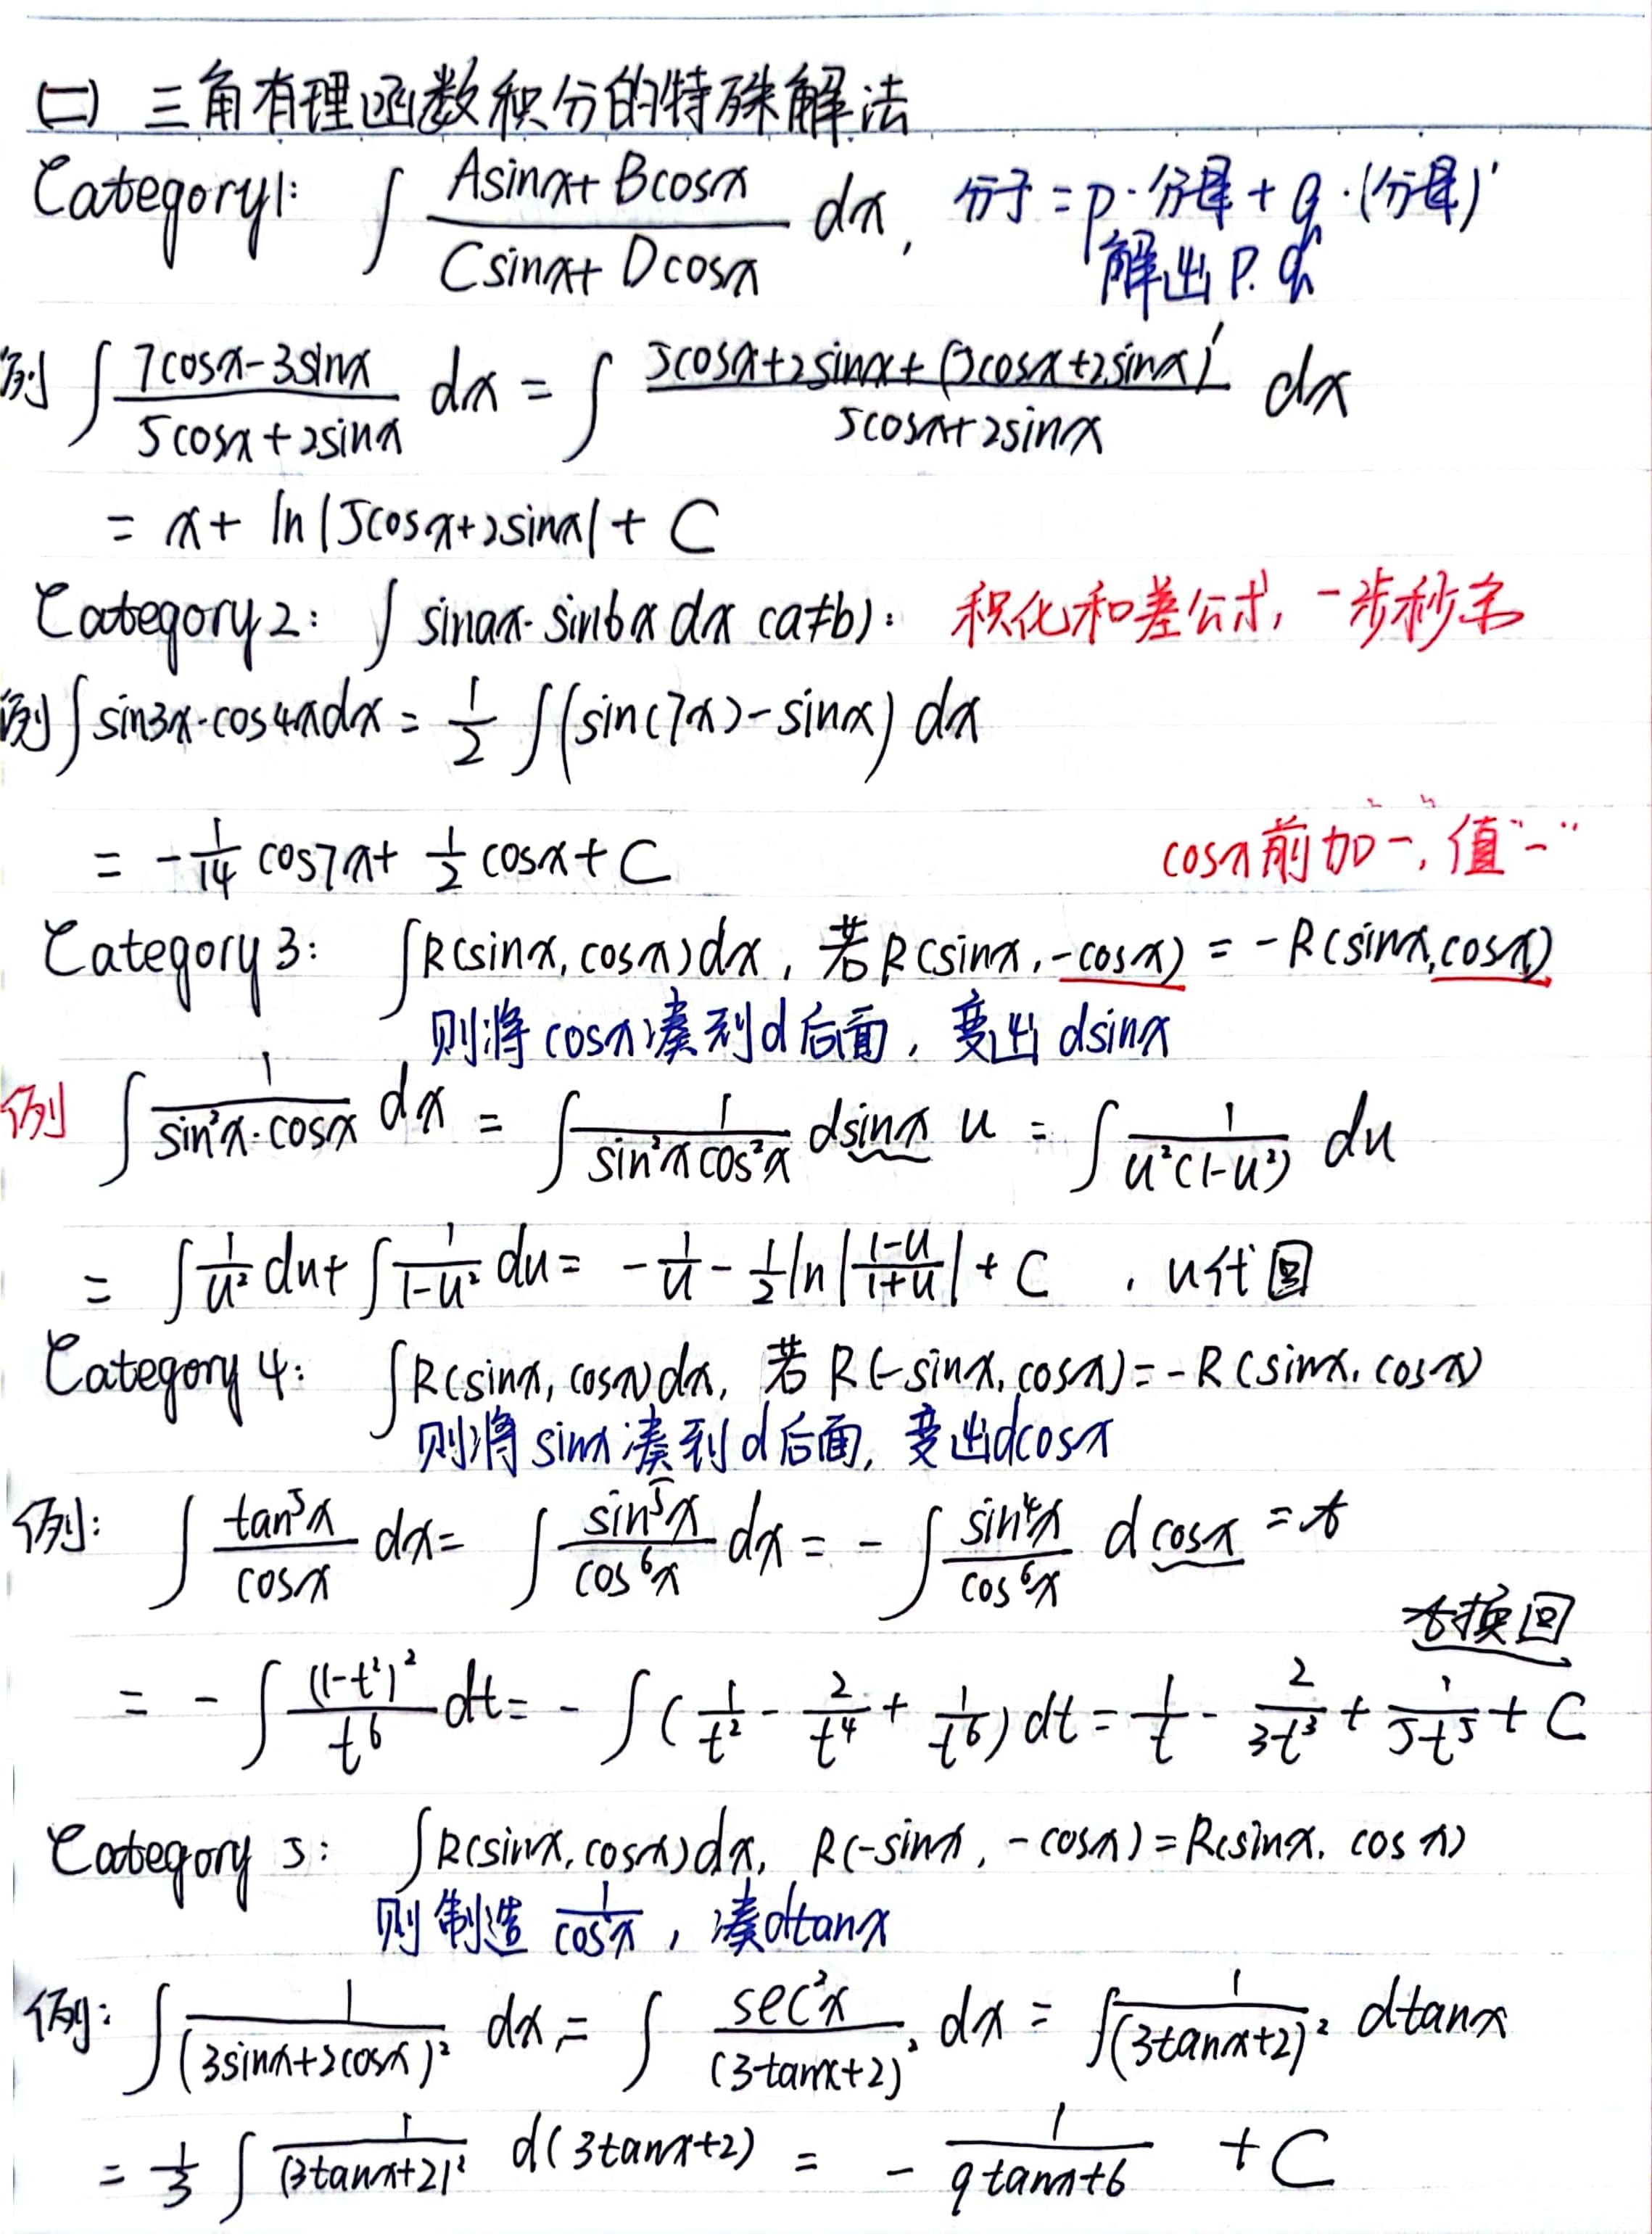 (二) 三角有理函数积分的特殊解法
Category1: ∫ (Asinx+Bcosx)/(Csinx+Dcosx) dx, 分子=p·分母+q·(分母)'
解出p.q
例 ∫ (7cosx-3sinx)/(5cosx+2sinx) dx = ∫ (5cosx+2sinx+(5cosx+2sinx)')/(5cosx+2sinx) dx
= x+ ln|5cosx+2sinx|+ C
Category2: ∫ sinax·sinbx dx (a≠b): 积化和差公式, 一步秒杀
例 ∫ sin3x·cos4x dx = 1/2 ∫(sin(7x)-sinx) dx
= -1/14 cos7x+ 1/2 cosx+C
cosx前加-, 值"-"
Category3: ∫R(sinx,cosx)dx, 若R(sinx,-cosx) = -R(sinx,cosx)
则将cosx凑到d后面, 变出dsinx
例 ∫ 1/(sin²x·cosx) dx = ∫ 1/(sin²xcos²x) dsinx u = ∫ 1/(u²(1-u²)) du
= ∫ 1/u² du+ ∫ 1/(1-u²) du = -1/u - 1/2 ln|(1-u)/(1+u)| + C , u代回
Category 4: ∫R(sinx,cosx)dx, 若 R(-sinx,cosx)=-R(sinx,cosx)
则将sinx凑到d后面, 变出dcosx
例: ∫ tan⁵x/cosx dx= ∫ sin⁵x/cos⁶x dx = - ∫ sin⁴x/cos⁶x d cosx =t
t换回
= - ∫ (1-t²)²/t⁶ dt= - ∫ (1/t² - 2/t⁴ + 1/t⁶) dt = 1/t - 2/3t³ + 1/5t⁵ + C
Category 5: ∫R(sinx,cosx)dx, R(-sinx,-cosx)=R(sinx,cosx)
则制造 1/cos²x, 凑dtanx
例: ∫ 1/(3sinx+2cosx)² dx = ∫ sec²x/(3tanx+2)² dx = ∫ 1/(3tanx+2)² dtanx
= 1/3 ∫ 1/(3tanx+2)² d(3tanx+2) = - 1/(9tanx+6) + C